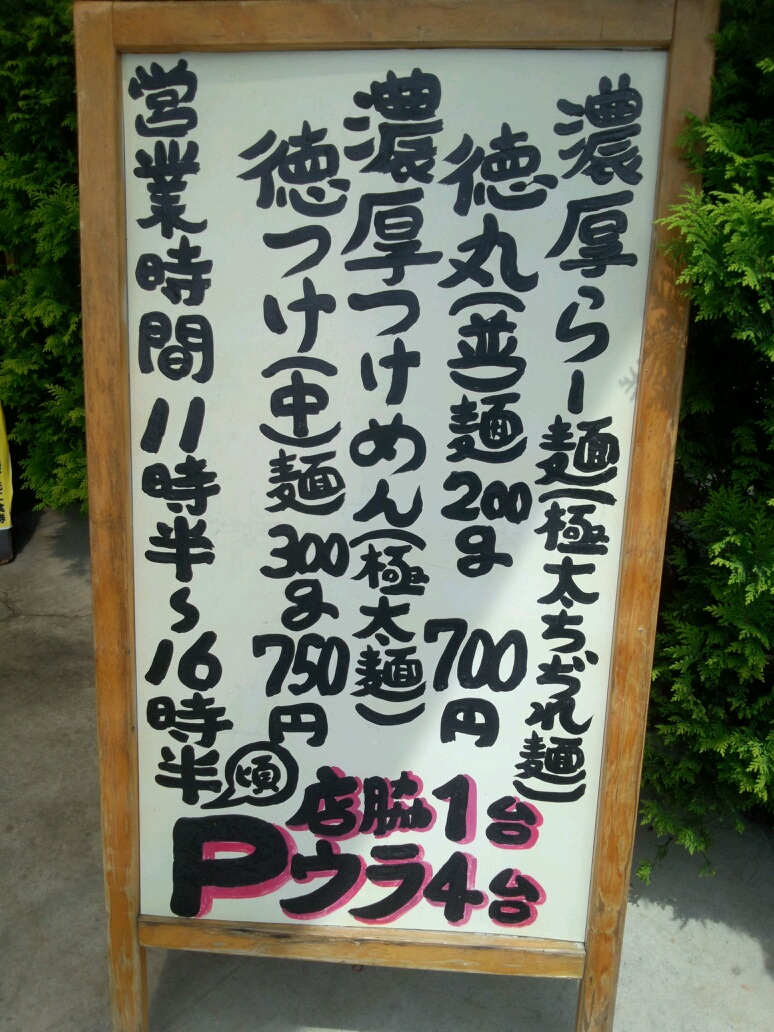 濃厚らー麺(極太ちぢれ麺)
徳丸(並)麺200g 700円
濃厚つけめん(極太麺)
徳つけ(中)麺300g750円
営業時間 11時半～16時半頃
P店脇1台
ウラ4台